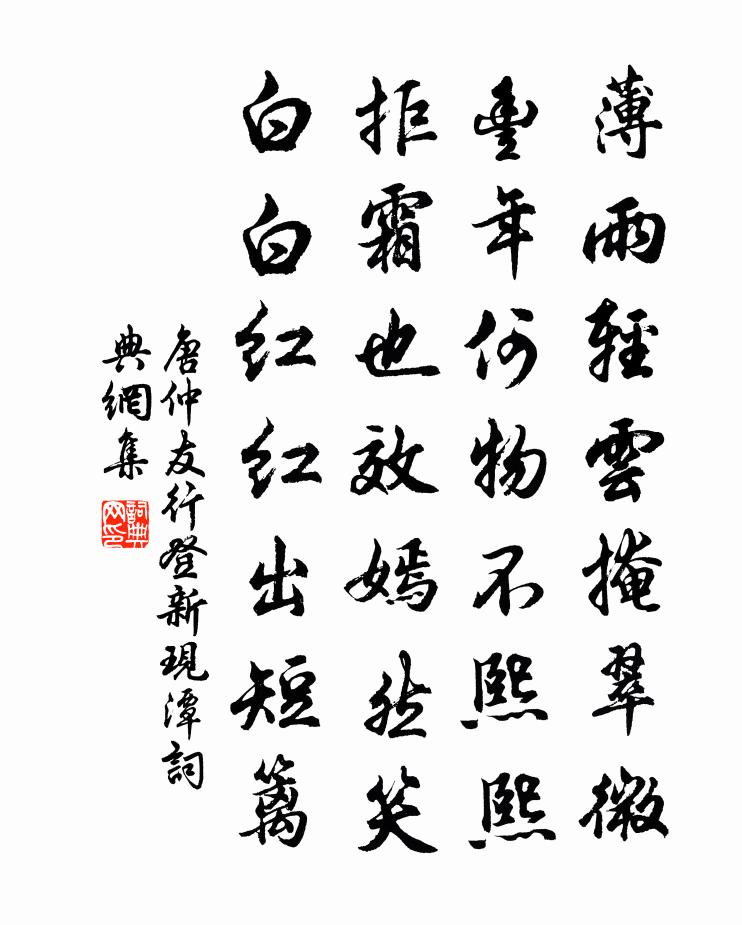 薄雨輕雲掩翠微
豐年何物不熙熙
拒霜也效嫣然笑
白白紅紅出短籬
唐仲友行登新現潭詞
典網集
詞典网印